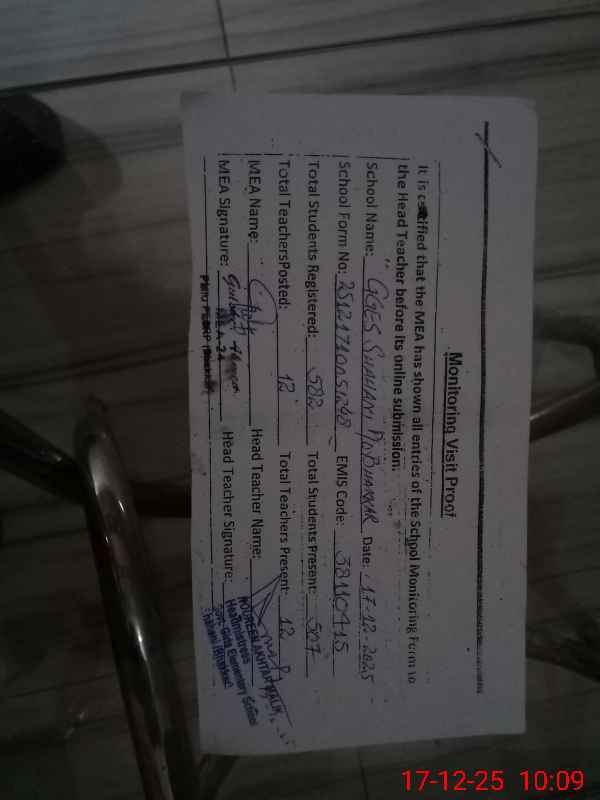 Monitoring Visit Proof
It is certified that the MEA has shown all entries of the School Monitoring Form to
the Head Teacher before its online submission.
School Name: GGES SHAHANI Date: 17-12-2025
School Form No: EMIS Code: 38110415
Total Students Registered: 582 Total Students Present: 507
Total TeachersPosted: 12 Total Teachers Present: 12
MEA Name: Head Teacher Name:
MEA Signature: Head Teacher Signature:
MEA-24
NOUREEN AKHTAR MALIK
Headmistress
Govt. Girls Elementary School
17-12-25 10:09